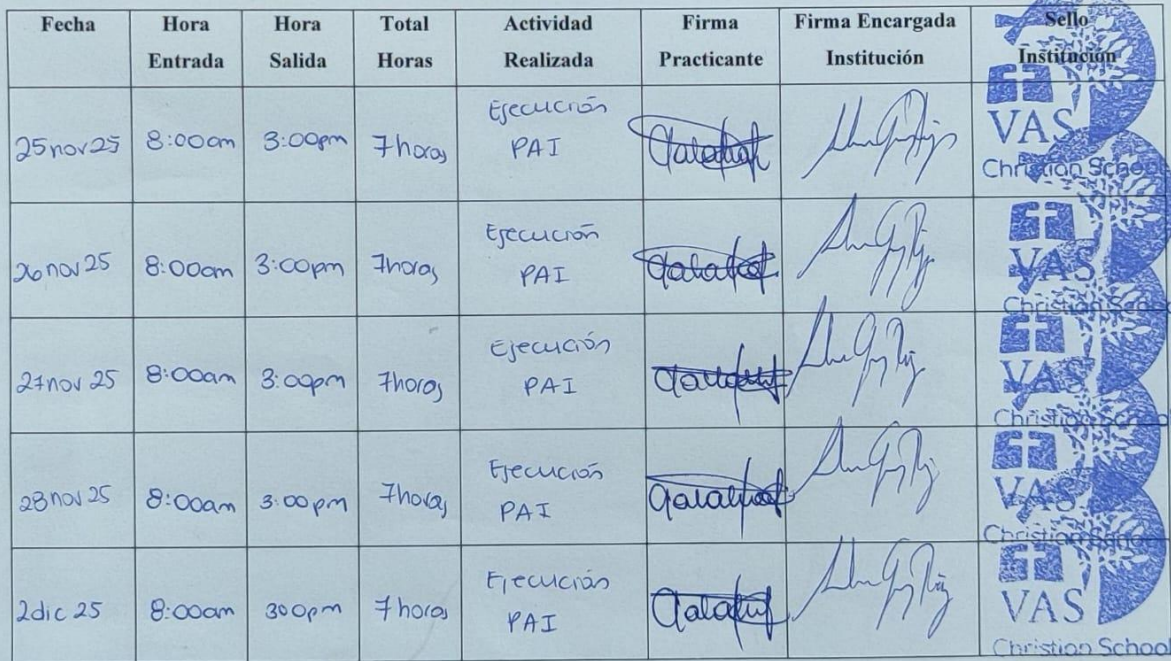 Fecha Hora Entrada Hora Salida Total Horas Actividad Realizada Firma Practicante Firma Encargada Institución Sello Institución
25 nov 25 8:00am 3:00pm 7 horas Ejecución PAI VAS Christian School
26 nov 25 8:00am 3:00pm 7horas Ejecución PAI VAS Christian School
27 nov 25 8:00am 3:00pm 7horas Ejecución PAI VAS Christian School
28 nov 25 8:00am 3:00pm 7horas Ejecución PAI VAS Christian School
2dic 25 8:00am 300pm 7 horas Ejecución PAI VAS Christian School